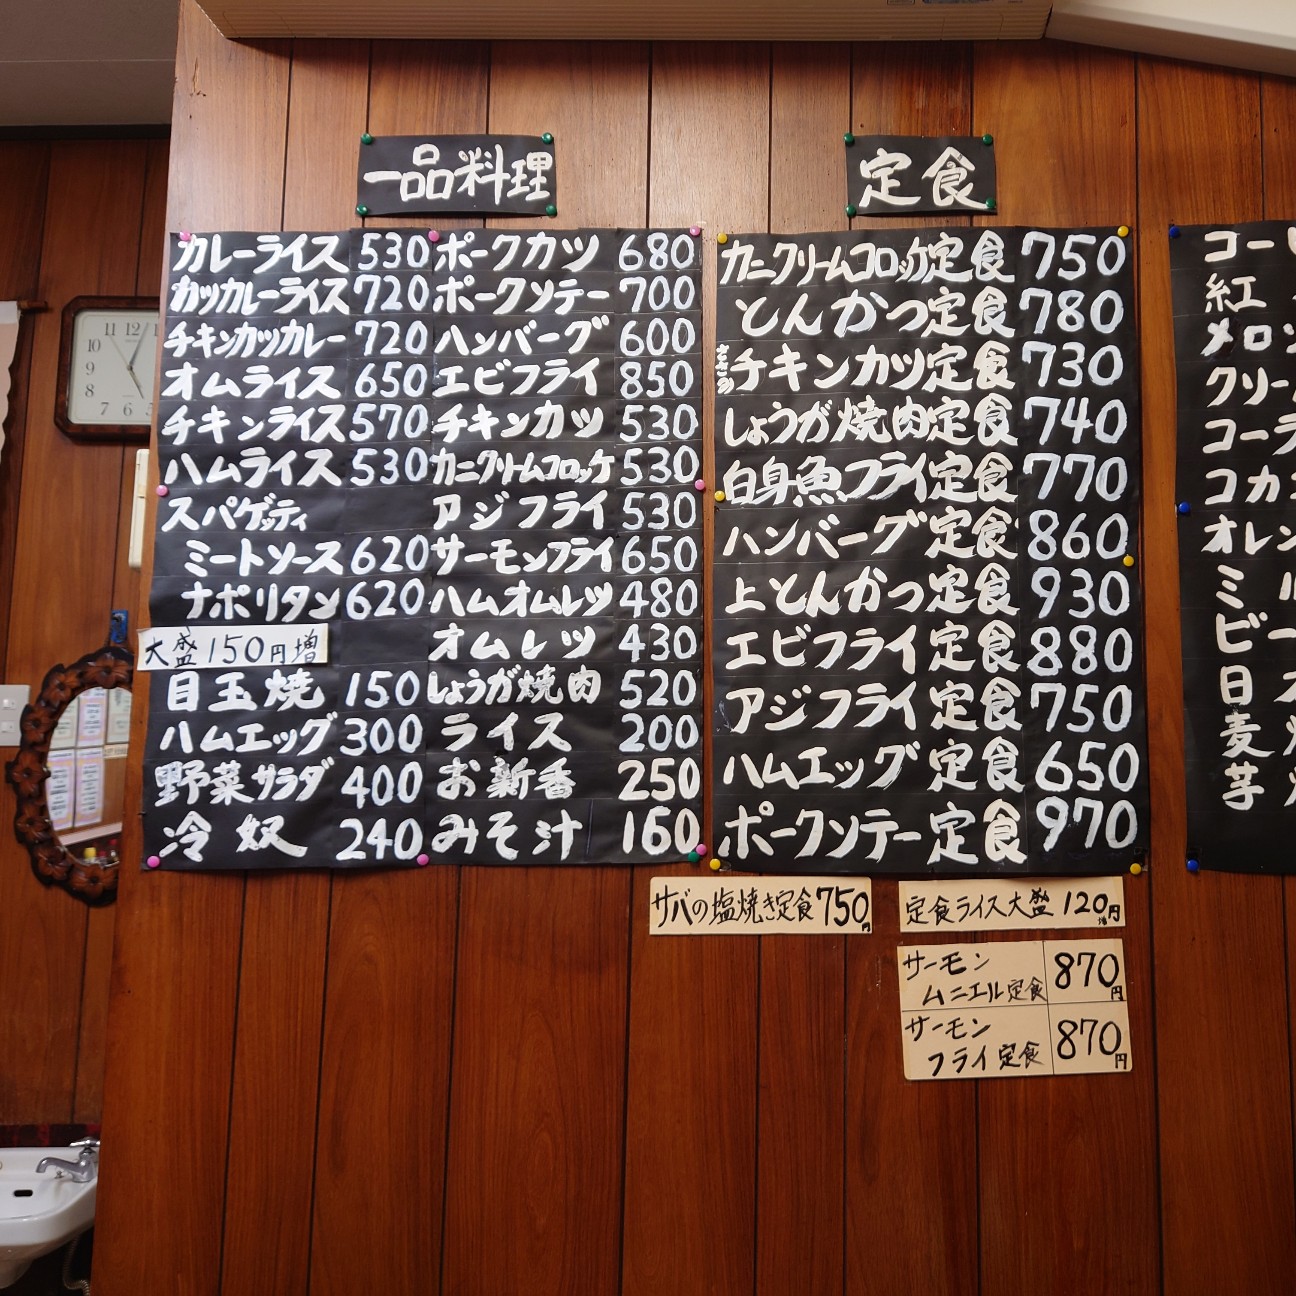 一品料理
カレーライス 530
カツカレーライス 720
チキンカツカレー 720
オムライス 650
チキンライス 570
ハムライス 530
スパゲッティ
ミートソース 620
ナポリタン 620
大盛150円増
目玉焼 150
ハムエッグ 300
野菜サラダ 400
冷奴 240
ポークカツ 680
ポークソテー 700
ハンバーグ 600
エビフライ 850
チキンカツ 530
カニクリームコロッケ 530
アジフライ 530
サーモンフライ 650
ハムオムレツ 480
オムレツ 430
しょうが焼肉 520
ライス 200
お新香 250
みそ汁 160
定食
カニクリームコロッケ定食 750
とんかつ定食 780
ささみチキンカツ定食 730
しょうが焼肉定食 740
白身魚フライ定食 770
ハンバーグ定食 860
上とんかつ定食 930
エビフライ定食 880
アジフライ定食 750
ハムエッグ定食 650
ポークソテー定食 970
サバの塩焼き定食 750円
定食ライス大盛 120円増
サーモン
ムニエル定食 870円
サーモン
フライ定食 870円
コー
紅
メロン
クリー
コーラ
コカ
オレン
ミル
ビー
日
麦
芋